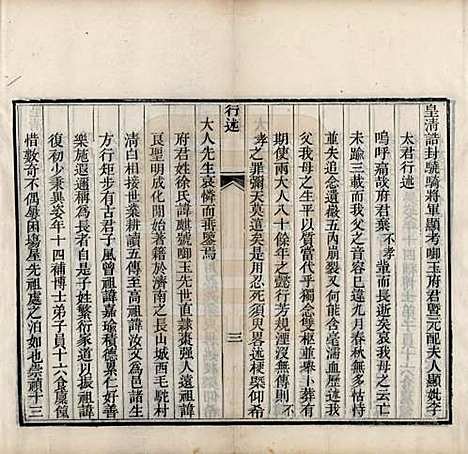 皇清誥封驍騎將軍顯考啣玉府君暨元配夫人顯妣李
太君行述
嗚呼痛哉府君棄不孝等而長逝矣哀我母之云亡
未踰三載可痛哉而我父之音容自已違九月春秋無多怙恃
並失追念遺徽五內崩裂又何能含毫濡血歷述我
父我母之生平以質當代乎獨念雙柩並葬有期
使兩大人八十餘年之懿行芳規湮沒無傳則不
孝之罪彌天莫逭矣是用忍死須臾畧述梗槩仰希
行述
三
大人先生哀憐而垂鑒焉
府君姓徐氏諱麒號啣玉先世直隸棗強人遠祖諱
良聖明成化開始著籍於濟南之長山城西毛駝村
清白相世業耕讀五傳至高祖諱汝文爲邑諸生
方行矩步有古君子風曾祖諱嘉瑜積德累仁好善
樂施遐邇稱爲長者自是子姓繁衍家道以振祖諱
復初少秉異姿年十四補博士弟子員十六食廩餼
惜數奇不偶屢困場屋先祖處之泊如也崇禎十三